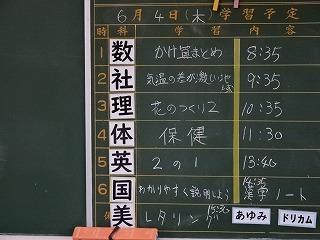 6月4日(木)学習予定
時 科 学習 内容
1 数 かけ算まとめ 8:35
2 社 気温の差が激しい地域 9:35
3 理 花のつくり2 10:35
4 体 保健 11:30
5 英 2の1 13:40
6 国 わかりやすく説明しよう 14:35 漢字ノート
美 レタリング 15:30 あゆみ ドリカム